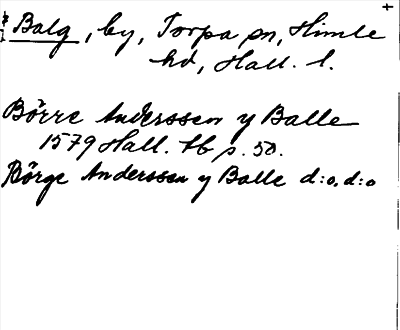 Balg, by, Torpa sn, Himle
hd, Hall. l.
Börre Anderssen y Balle
1579 Hall. tb p. 50.
Börge Anderssen y Balle d:o, d:o